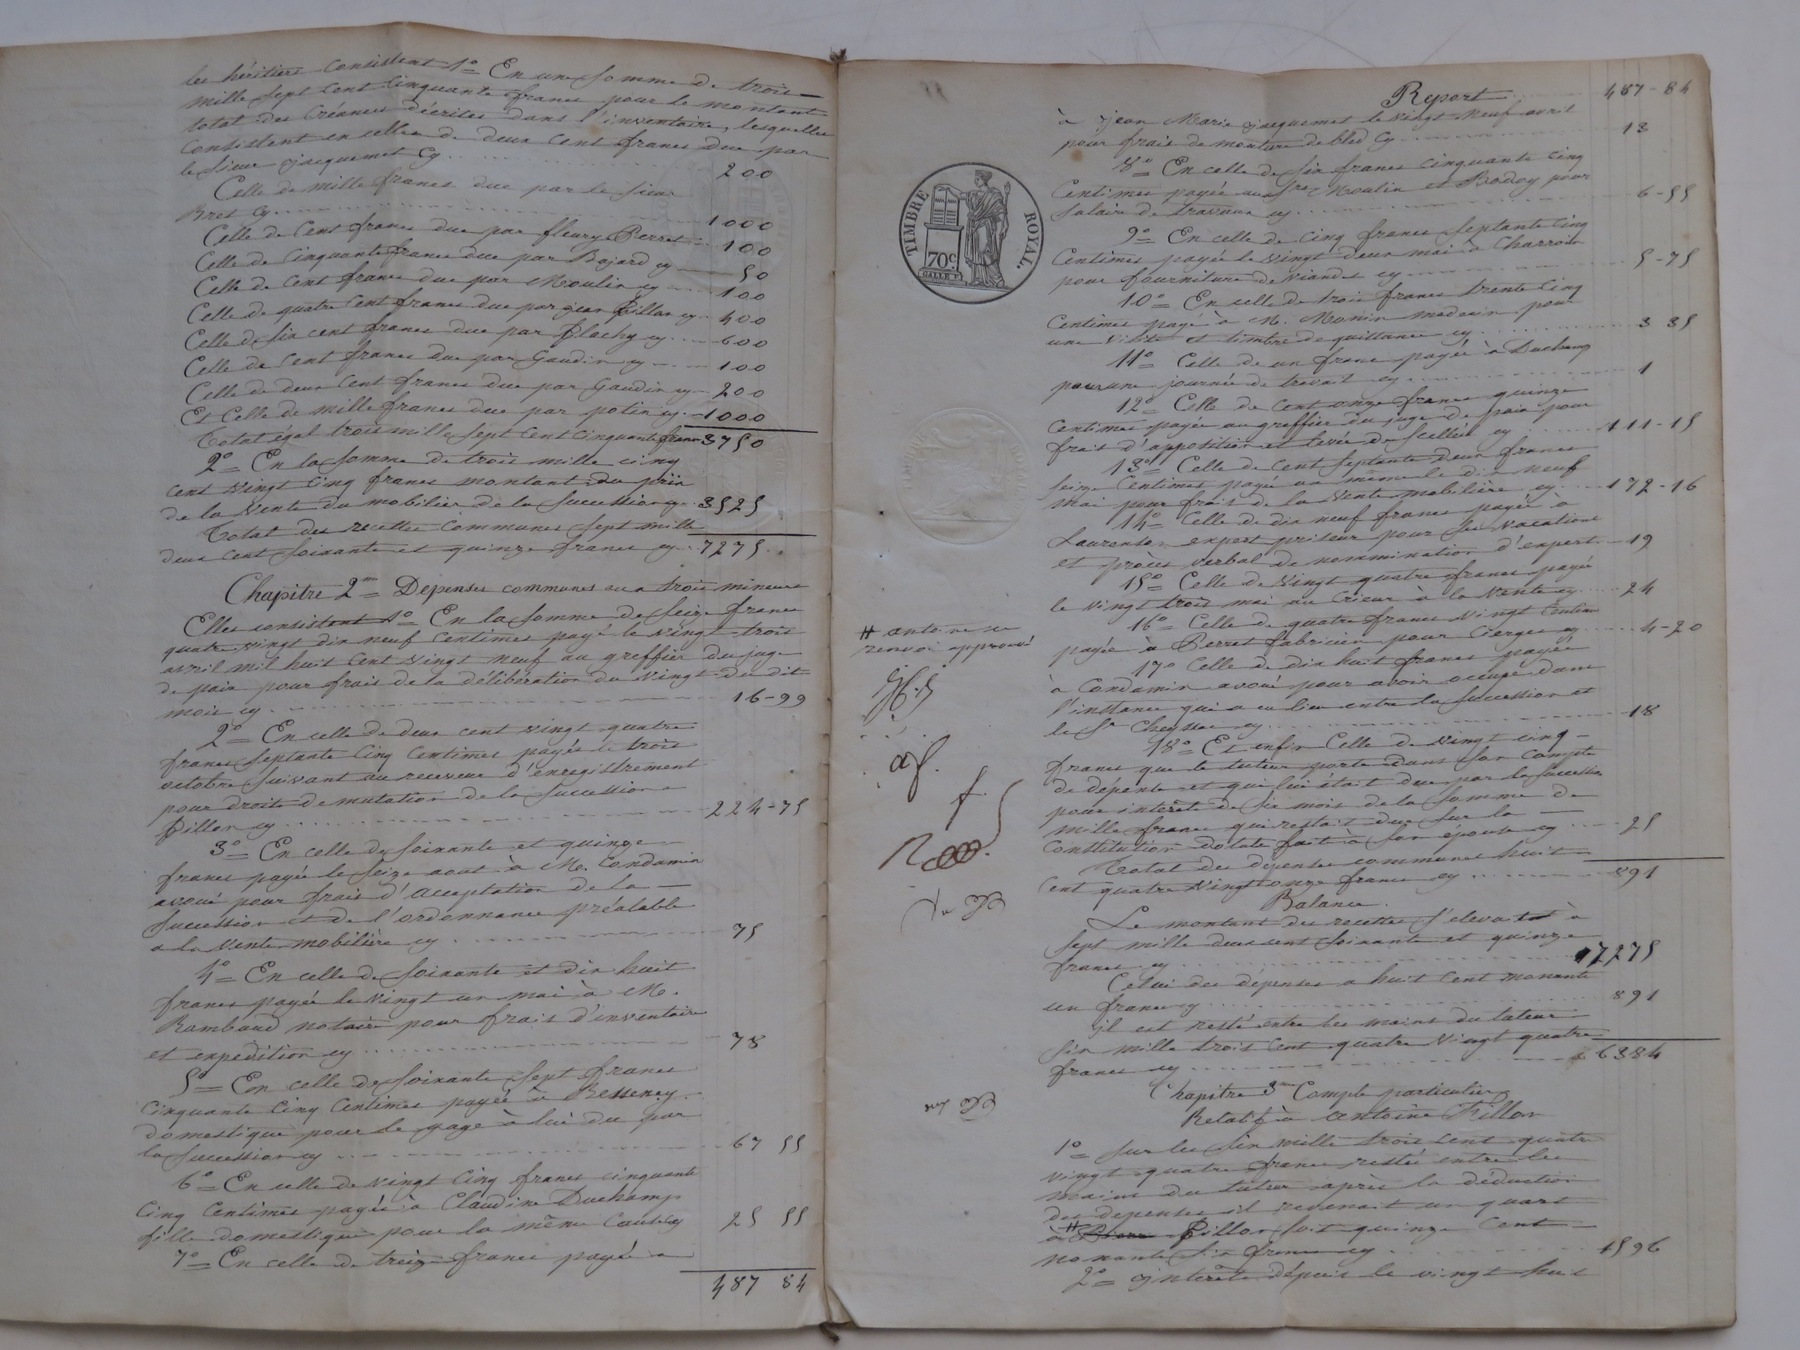 les héritiers Consistent 1º En une Somme de trois
mille Sept Cent Cinquante francs pour le montant
total des Créances décrites dans l'inventaire, lesquelles
Consistent en celle de deux Cent francs due par
le Sieur jacquemet cy 200
Celle de mille francs due par le Sieur
Bret cy 1000
Celle de Cent francs due par fleury Perret 100
Celle de Cinquante francs due par Bajard cy 50
Celle de Cent francs due par Moulin cy 100
Celle de quatre Cent francs due par jean fillon cy 400
Celle de Six cent francs due par Plachy cy 600
Celle de Cent francs due par Gaudin cy 100
Celle de deux Cent francs due par Gaudin cy 200
Et Celle de mille francs due par potin cy 1000
Total égal trois mille Sept Cent Cinquante francs 3750
2º En la Somme de trois mille cinq
cent vingt Cinq francs montant du prix
de la vente du mobilier de la Succession cy 3525
Total des recettes communes Sept mille
deux cent Soixante et quinze francs cy 7275
Chapitre 2me Dépenses communes aux trois mineurs
Elles consistent 1º En la Somme de Seize francs
quatre vingt dix neuf Centimes payé le vingt trois
avril mil huit Cent vingt neuf au greffier du juge
de paix pour frais de la délibération du vingt du dit
mois cy 16-99
2º En celle de deux cent vingt quatre
francs Septante Cinq Centimes payés le trois
octobre Suivant au receveur d'enregistrement
pour droits de mutation de la Succession
fillon cy 224-75
3º En celle de Soixante et quinze
francs payée le Seize aout à M. Condamin
avoué pour frais d'acceptation de la
Succession et de l'ordonnance préalable
a la vente mobilière cy 75
4º En celle de Soixante et dix huit
francs payée le vingt un mai à M.
Rambaud notaire pour frais d'inventaire
et expedition cy 78
5º En celle de Soixante Sept francs
Cinquante Cinq Centimes payée à Besseney
domestique pour le gage à lui du par
la Succession cy 67 55
6º En celle de vingt Cinq francs cinquante
Cinq Centimes payée à Claudine Duchamp
fille domestique pour la même Cause cy 25 55
7º En celle de treize francs payée a
487 84
Report 487-84
à jean Marie jacquemet le vingt Neuf avril
pour frais de monture de bled cy 13
8º En celle de Six francs cinquante cinq
Centimes payée aux Srs Moulin et Rodoy pour
Salaire de travaux cy 6-55
9º En celle de Cinq francs Septante Cinq
Centimes payée le vingt deux mai à Charroin
pour fourniture de viandes cy 5-75
10º En celle de trois francs trente Cinq
Centimes payé à M. Monin medecin pour
une visite et timbre de quittance cy 3 35
11º Celle de un franc payée à Duchamp
pour une journée de travail cy 1
12º Celle de Cent onze francs quinze
Centimes payée au greffier du juge de paix pour
frais d'apposition et levée de Scellés cy 111-15
13º Celle de Cent Septante deux francs
Seize Centimes payée au même le dix neuf
mai pour frais de la vente mobilière cy 172-16
14º Celle de dix neuf francs payée à
Laurenson expert priseur pour Ses vacations
et procès verbal de nommination d'expert 19
15º Celle de vingt quatre francs payée
le vingt trois mai au Crieur à la vente cy 24
16º Celle de quatre francs vingt Centimes
payée à Perret fabricien pour Cierges cy 4-20
17º Celle de dix huit francs payée
à Condamin avoué pour avoir occupé dans
l'instance qui a eu lieu entre la Succession et
le Sr Cheysse cy 18
18º Et enfin Celle de vingt cinq
francs que le tuteur porte dans Son Compte
de dépense et qui lui était due par la Succession
pour intérêts de Six mois de la Somme de
mille francs qui restait due Sur la
Constitution dotale fait à Son épouse cy 25
Total des dépenses communes huit
Cent quatre vingt onze francs cy 891
Balance.
Le montant des recettes S'eleva à
Sept mille deux cent Soixante et quinze
francs cy 7275
Celui des dépenses a huit Cent nonante
un francs cy 891
il est resté entre les mains du tuteur
Six mille trois Cent quatre vingt quatre
francs cy 6384
Chapitre 3me Compte particulier
Relatif à antoine fillon
1º Sur les Six mille trois Cent quatre
vingt quatre francs restés entre les
mains du tuteur après la déduction
des dépenses il revenait un quart
à # fillon Soit quinze Cent
nonante Six francs cy 1596
2º interets depuis le vingt huit
TIMBRE ROYAL.
70c.
# antoine
renvoi approuvé